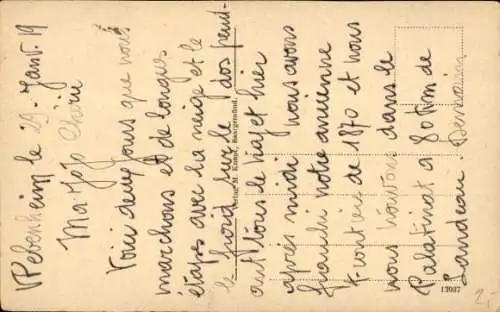 Pebenheim le 29 - Janv. 19
Ma JoJo Chérie
Voici deux jours que nous
marchons et de longues
étapes avec la neige et le
le froid sur le dos pend-
ant tous le trajet hier
après midi nous avons
franchi notre ancienne
frontière de 1870 et nous
nous trouvons dans le
Palatinat a 80 Km de
Landau.
M. Klauer, Saargemünd.
13037
2,-